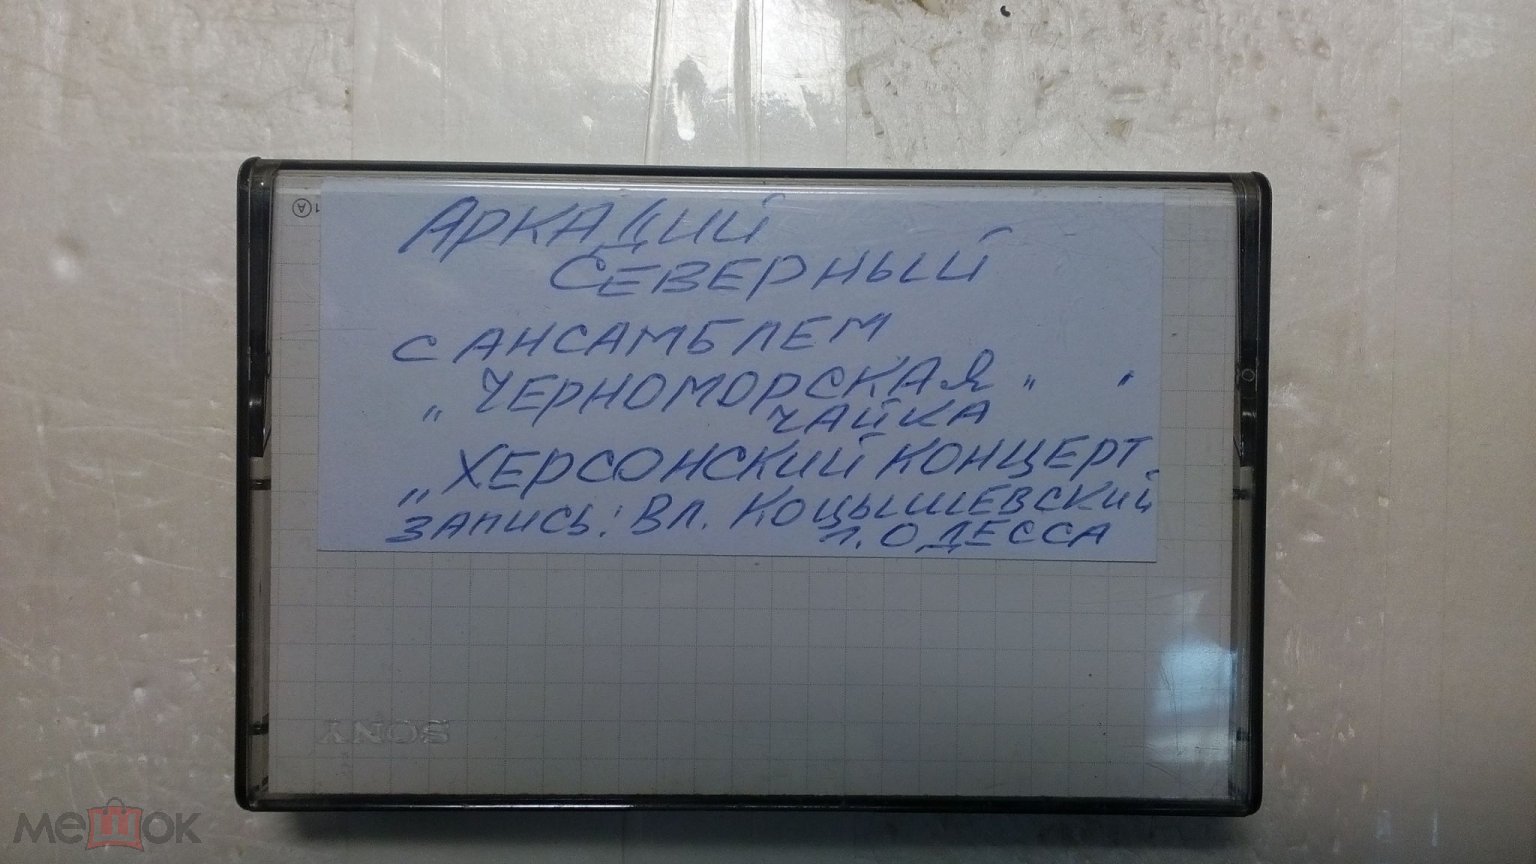 АРКАДИЙ
СЕВЕРНЫЙ
С АНСАМБЛЕМ
„ЧЕРНОМОРСКАЯ"
ЧАЙКА
„ХЕРСОНСКИЙ КОНЦЕРТ"
ЗАПИСЬ: ВЛ. КОЦЫШЕВСКИЙ
г. ОДЕССА
SONY
мешок